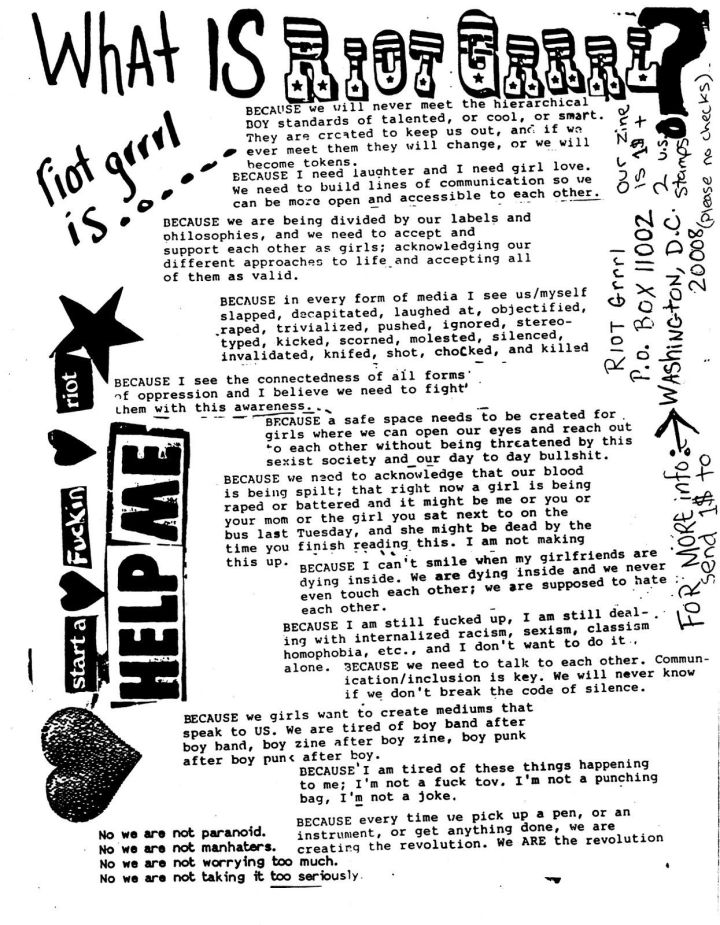 WHAT IS RIOT GRRRL?
riot grrrl
is........
BECAUSE we will never meet the hierarchical
BOY standards of talented, or cool, or smart.
They are created to keep us out, and if we
ever meet them they will change, or we will
become tokens.
BECAUSE I need laughter and I need girl love.
We need to build lines of communication so we
can be more open and accessible to each other.
BECAUSE we are being divided by our labels and
philosophies, and we need to accept and
support each other as girls; acknowledging our
different approaches to life and accepting all
of them as valid.
BECAUSE in every form of media I see us/myself
slapped, decapitated, laughed at, objectified,
raped, trivialized, pushed, ignored, stereo-
typed, kicked, scorned, molested, silenced,
invalidated, knifed, shot, chocked, and killed
BECAUSE I see the connectedness of all forms
of oppression and I believe we need to fight
them with this awareness...
BECAUSE a safe space needs to be created for
girls where we can open our eyes and reach out
to each other without being threatened by this
sexist society and our day to day bullshit.
BECAUSE we need to acknowledge that our blood
is being spilt; that right now a girl is being
raped or battered and it might be me or you or
your mom or the girl you sat next to on the
bus last Tuesday, and she might be dead by the
time you finish reading this. I am not making
this up.
BECAUSE I can't smile when my girlfriends are
dying inside. We are dying inside and we never
even touch each other; we are supposed to hate
each other.
BECAUSE I am still fucked up, I am still deal-
ing with internalized racism, sexism, classism
homophobia, etc., and I don't want to do it
alone.
BECAUSE we need to talk to each other. Commun-
ication/inclusion is key. We will never know
if we don't break the code of silence.
BECAUSE we girls want to create mediums that
speak to US. We are tired of boy band after
boy band, boy zine after boy zine, boy punk
after boy punk after boy.
BECAUSE I am tired of these things happening
to me; I'm not a fuck toy. I'm not a punching
bag, I'm not a joke.
BECAUSE every time we pick up a pen, or an
instrument, or get anything done, we are
creating the revolution. We ARE the revolution
No we are not paranoid.
No we are not manhaters.
No we are not worrying too much.
No we are not taking it too seriously.
start a
Fuckin
riot
HELP ME
FOR MORE info:
send 1$ to
RIOT Grrrl
P.O. BOX 11002
WASHINGTON, D.C.
20008
our zine
is 1$ +
2 u.s.
stamps
(please no checks).